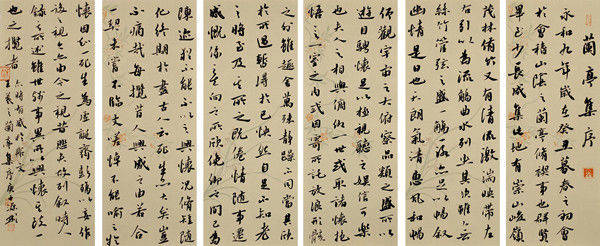 蘭亭集序
永和九年歲在癸丑暮春之初會
於會稽山陰之蘭亭修禊事也群賢
畢至少長咸集此地有崇山峻嶺
茂林修竹又有清流激湍映帶左
右引以為流觴曲水列坐其次雖無
絲竹管弦之盛一觴一詠亦足以暢敘
幽情是日也天朗氣清惠風和暢
仰觀宇宙之大俯察品類之盛所以
遊目騁懷足以極視聽之娛信可樂
也夫人之相與俯仰一世或取諸懷抱
悟言一室之内或因寄所託放浪形骸
之外雖趣舍萬殊靜躁不同當其欣
於所遇暫得於己快然自足不知老
之將至及其所之既倦情隨事遷
感慨係之矣向之所欣俛仰之間已為
陳迹猶不能不以之興懷況修短隨
化終期於盡古人云死生亦大矣豈
不痛哉每攬昔人興感之由若合
一契未嘗不臨文嗟悼不能喻之於
懷固知一死生為虛誕齊彭殤為妄作
後之視今亦由今之視昔悲夫故列敘時人
錄其所述雖世殊事異所以興懷其致一
也後之攬者亦將有感於斯文
王羲之蘭亭集序